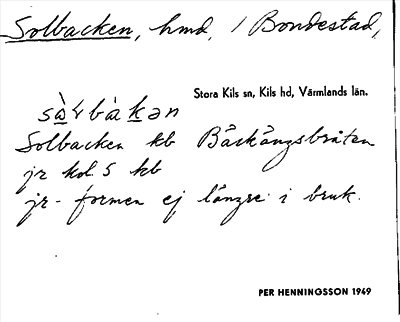 Solbacken, hmd, 1 Bondestad,
Stora Kils sn, Kils hd, Värmlands län.
Solbacken kb Bäckängsbråten
jr kd. 5 kb
jr-formen ej längre i bruk.
PER HENNINGSSON 1949